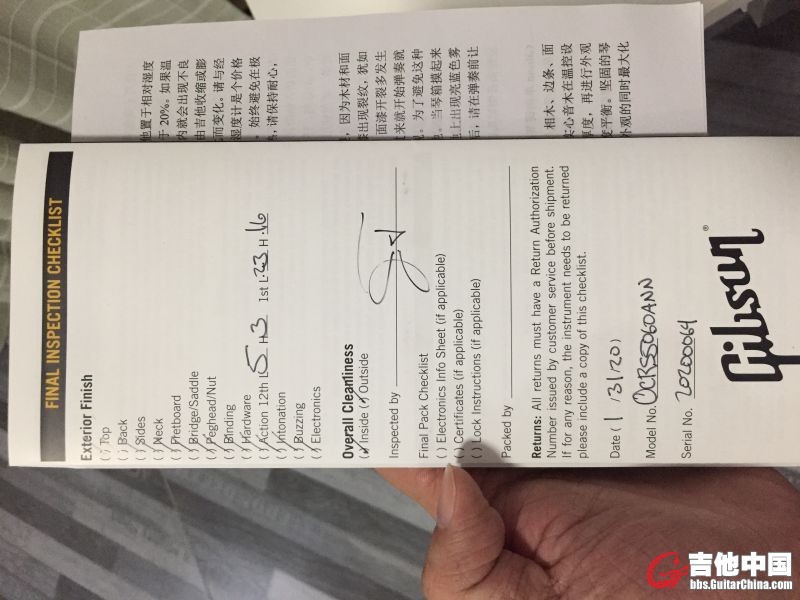 FINAL INSPECTION CHECKLIST
Exterior Finish
(✓) Top
( ) Back
(✓) Sides
(✓) Neck
(✓) Fretboard
(✓) Bridge/Saddle
(✓) Peghead/Nut
(✓) Binding
(✓) Hardware
(✓) Action 12th L 5 H 3 1st L .23 H .16
(✓) Intonation
(✓) Buzzing
(✓) Electronics
Overall Cleanliness
(✓) Inside (✓) Outside
Inspected by
Final Pack Checklist
( ) Electronics Info Sheet (if applicable)
( ) Certificates (if applicable)
( ) Lock Instructions (if applicable)
Packed by
Returns: All returns must have a Return Authorization
Number issued by customer service before shipment.
If for any reason, the instrument needs to be returned
please include a copy of this checklist.
Date ( 1 /3/20)
Model No. OCRSS060ANN
Serial No. 20200064
Gibson®
置于相对湿度
于 20%。如果温
内就会出现不良
由吉他收缩或膨
而变化。请与经
湿度计是个价格
始终避免在极
请保持耐心，
因为木材和面
出现裂纹，犹如
面漆开裂多发生
过来就开始弹奏就
。为了避免这种
当琴箱摸起来
上出现亮蓝色雾
后，请在弹奏前让
木、边条、面
实心音木在温控设
厚度，再进行外观
度平衡。坚固的琴
外观的同时最大化
吉他中国
bbs.GuitarChina.com